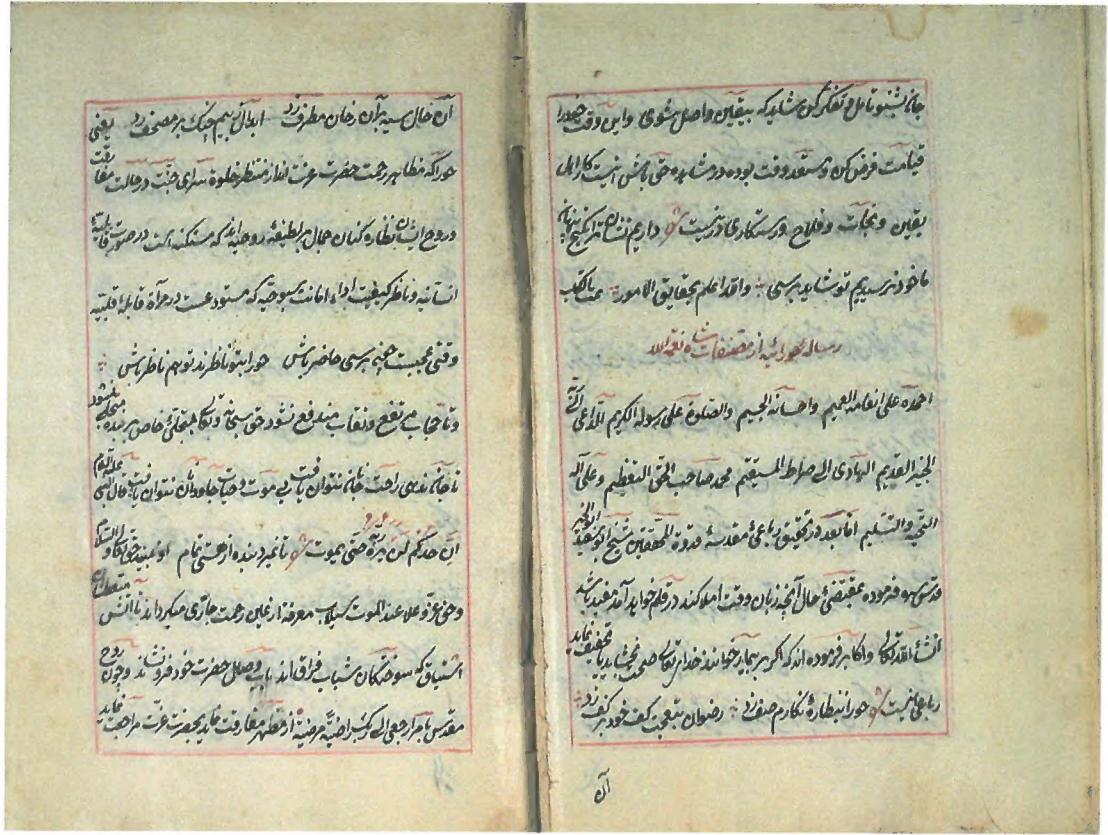 جانا بشنو تأمل و تفکر کن شاید که بیقین واصل شوی و این وقت خود را
قیامت فرض کن و مستعد وقت بوده در مشاهده حق باش اینست کار اهل
یقین و نجات و فلاح و رستگاری در نیست شعر داریم نشان ز گنج پنهانه
ما خود نرسیدیم تو شاید برسی والله اعلم بحقایق الامور تمت بالکتب
رساله حورائیه از مصنفات شاه نعمة الله
احمده علی انعامه العمیم و احسانه الجسیم والصلوة علی رسوله الکریم الداعی الی
الخیر القدیم الهادی الی صراط المستقیم محمد صاحب الحق التعظیم و علی آله
التحیه والتسلیم اما بعد در تحقیق رباعی مقدسه قدوة المحققین شیخ ابو سعید ابو الخیر
قدس سره فرموده بمقتضی حال آنچه زبان وقت املا کند در قلم خواهد آمد مفید باشد
انشاء الله تعالی و اکابر فرموده اند که اگر بر بیمار خوانند خدای تعالی صحت بخشاید یا تخفیف نماید
رباعی اینست شعر حورا بنظاره نگارم صف زد رضوان بتعجب کف خود بر کف زد
آن
آن خال سیه بر آن رخان مطرف زد ابدال ز بیم چنک بر مصحف زد یعنی
حورا که مظاهر رحمت حضرت عزت اند از منتظر خلوة سرای جنت در حالت مفارقت
و روح انسان نظاره کنان جمال بر لطیفه روحیه اند که مستکنه است در صورت قابلیه
انسانیه و ناظر کیفیت اداء امانت بسبوحیه که مستودعست در مرآة قابله قلبیه
وقتی عجبت چنین برسی حاضر باش حورا بتو ناظرند تو هم ناظر باش
و تا حجاب مرتفع و نقاب مندفع نشود حق سبحانه و تعالی بتجلی خاص بر بنده متجلی نشود
تا جان ندهی راحت جان نتوان یافت بی موت و حیات جاودان نتوان یافت قال النبی علیه السلام
ان احدکم لن یری ربه حتی یموت شعر تا نمیرد بنده از هستی تمام او نبیند حق تعالی والسلام
و حق عز و علا عند الموت سیلاب معرفه از عین رحمت جاری میگرداند تا آتش متعطشان
اشتیاق که سوختگان شباب فراق اند بآب وصال حضرت خود فرو نشاند و چون روح
مقدس بامر ارجعی الی ربک راضیة مرضیة از مظهر مفارقت نماید بحضرت عزت مراجعت نماید